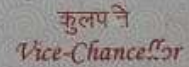 कुलप ने
Vice-Chancellor